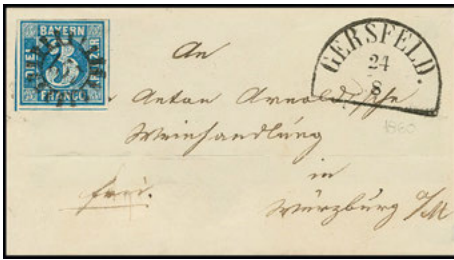 BAYERN
DREI
3
KREUZER
FRANCO
GERSFELD.
24
8
1860
An
Anton Arnold'sche
Weinhandlung
in
frei.
Würzburg a/M